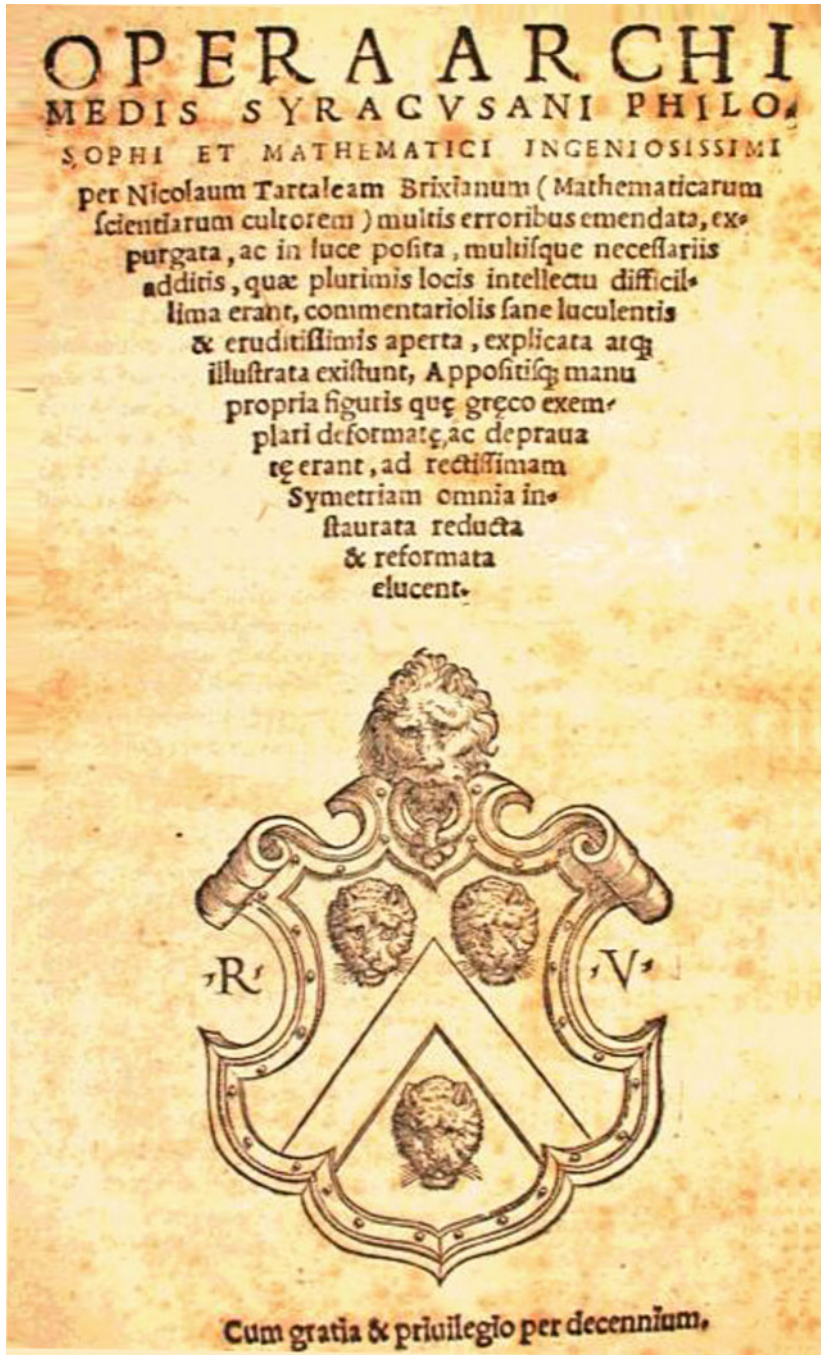 OPERA ARCHI
MEDIS SYRACVSANI PHILO.
SOPHI ET MATHEMATICI INGENIOSISSIMI
per Nicolaum Tartaleam Brixianum (Mathematicarum
ſcientiarum cultorem) multis erroribus emendata, ex-
purgata, ac in luce poſita, multiſque neceſſariis
additis, quæ plurimis locis intellectu difficil-
lima erant, commentariolis ſane luculentis
& eruditiſſimis aperta, explicata atqꝫ
illuſtrata exiſtunt, Appoſitiſqꝫ manu
propria figuris quę gręco exem-
plari deformatę, ac depraua
tę erant, ad rectiſſimam
Symetriam omnia in-
ſtaurata reducta
& reformata
elucent.
R V
Cum gratia & priuilegio per decennium.